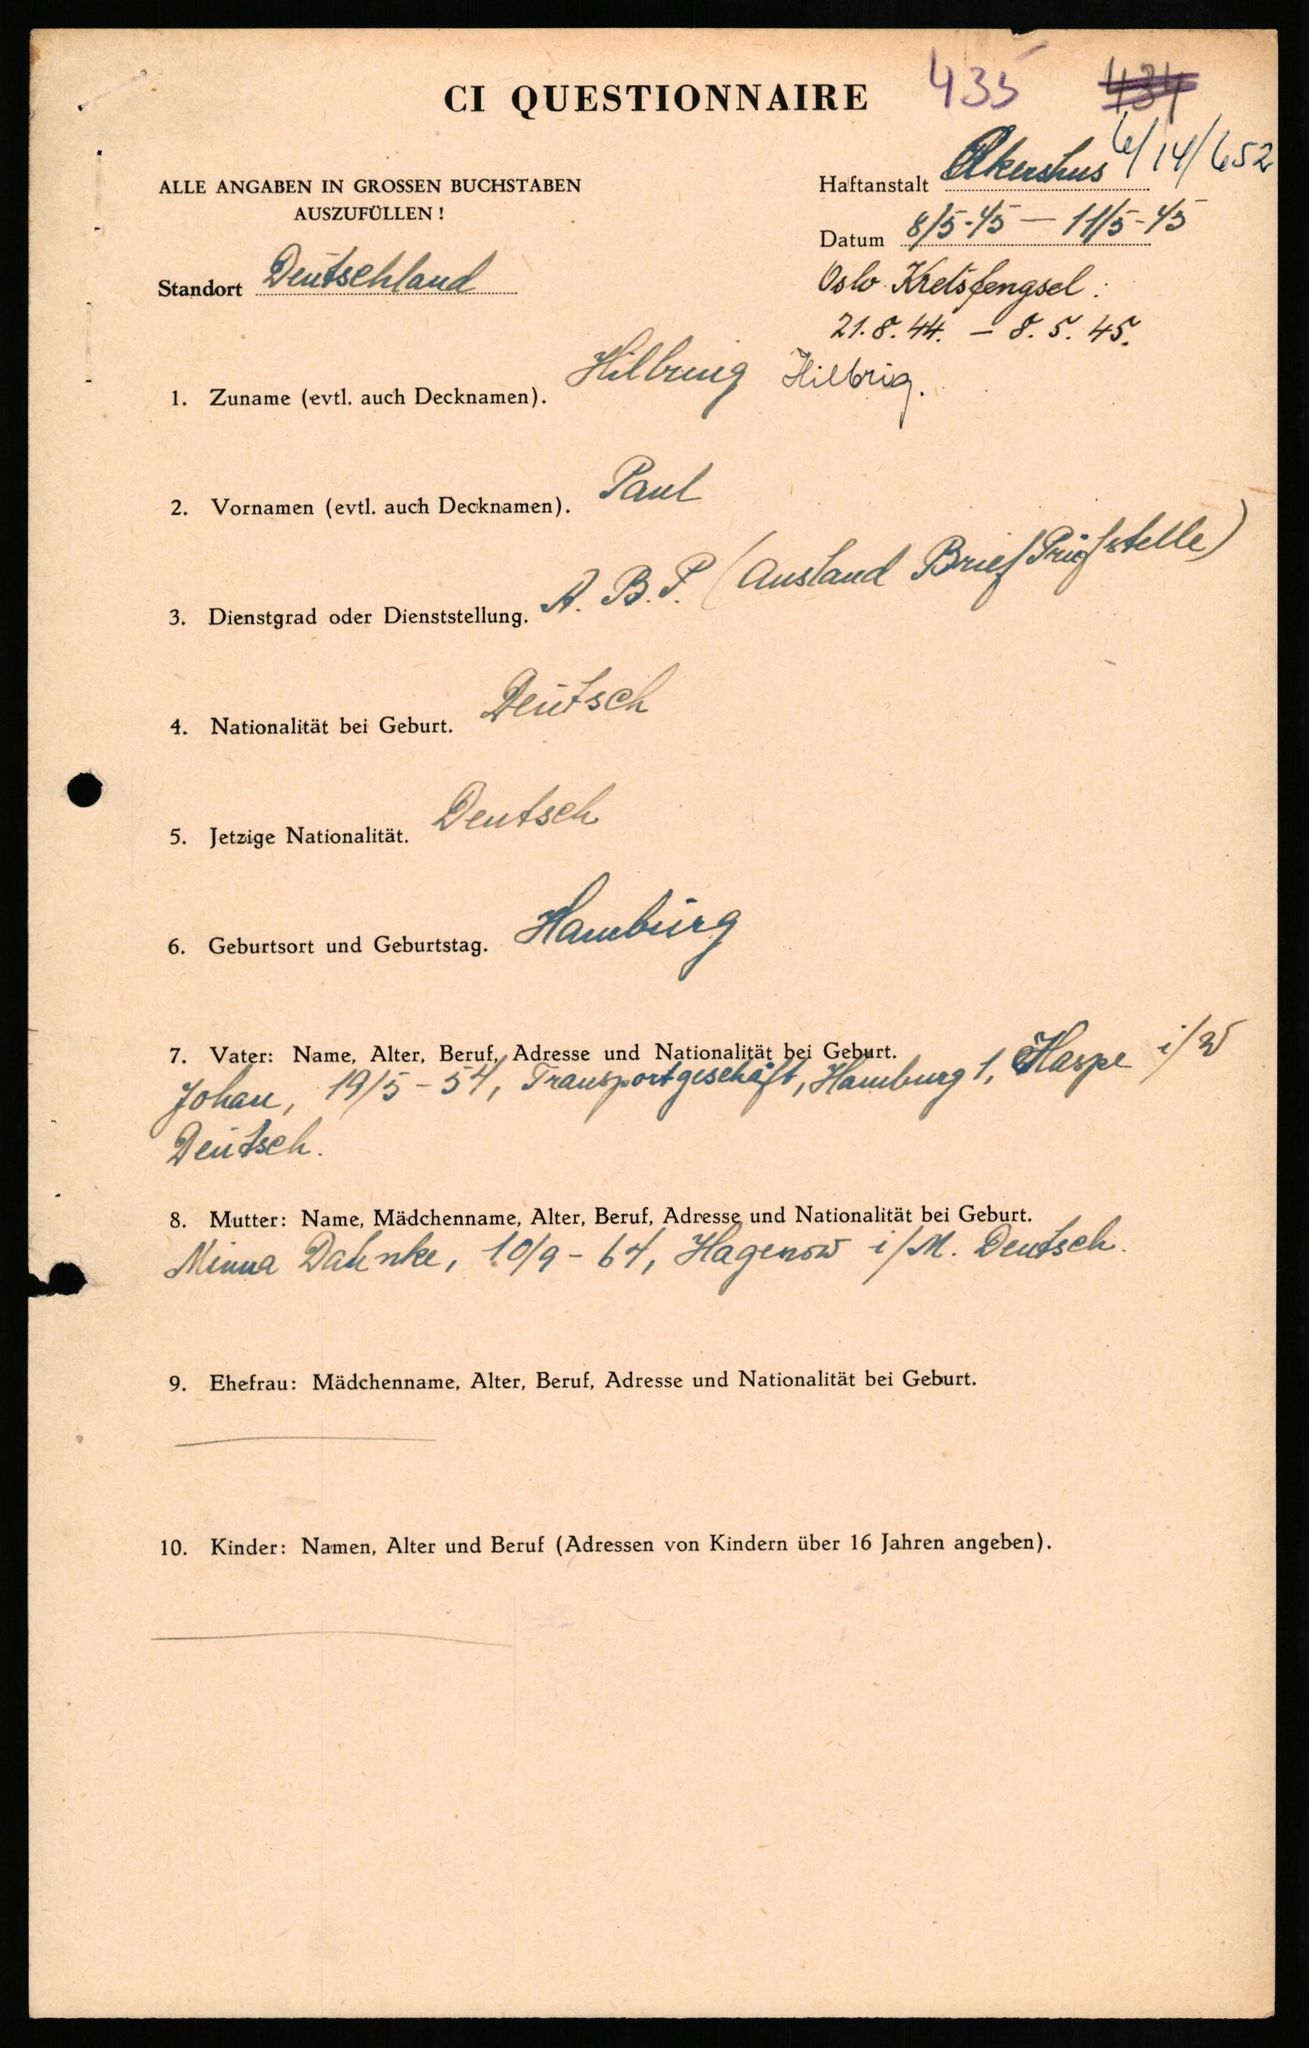 CI QUESTIONNAIRE 435 434
6/14/652
ALLE ANGABEN IN GROSSEN BUCHSTABEN
AUSZUFÜLLEN !
Haftanstalt Akershus
Datum 8/5-45 — 11/5-45
Standort Deutschland
Oslo Kretsfengsel :
21.8.44. – 8.5.45.
1. Zuname (evtl. auch Decknamen). Hilbrig Hilbrig.
2. Vornamen (evtl. auch Decknamen). Paul
3. Dienstgrad oder Dienststellung. A. B. P. (Ausland Brief Prüfstelle)
4. Nationalität bei Geburt. Deutsch
5. Jetzige Nationalität. Deutsch
6. Geburtsort und Geburtstag. Hamburg
7. Vater: Name, Alter, Beruf, Adresse und Nationalität bei Geburt.
Johan, 19/5-54, Transportgeschäft, Hamburg 1, Haspe i/W
Deutsch.
8. Mutter: Name, Mädchenname, Alter, Beruf, Adresse und Nationalität bei Geburt.
Minna Dahnke, 10/9-64, Hagenow i/M. Deutsch.
9. Ehefrau: Mädchenname, Alter, Beruf, Adresse und Nationalität bei Geburt.
10. Kinder: Namen, Alter und Beruf (Adressen von Kindern über 16 Jahren angeben).